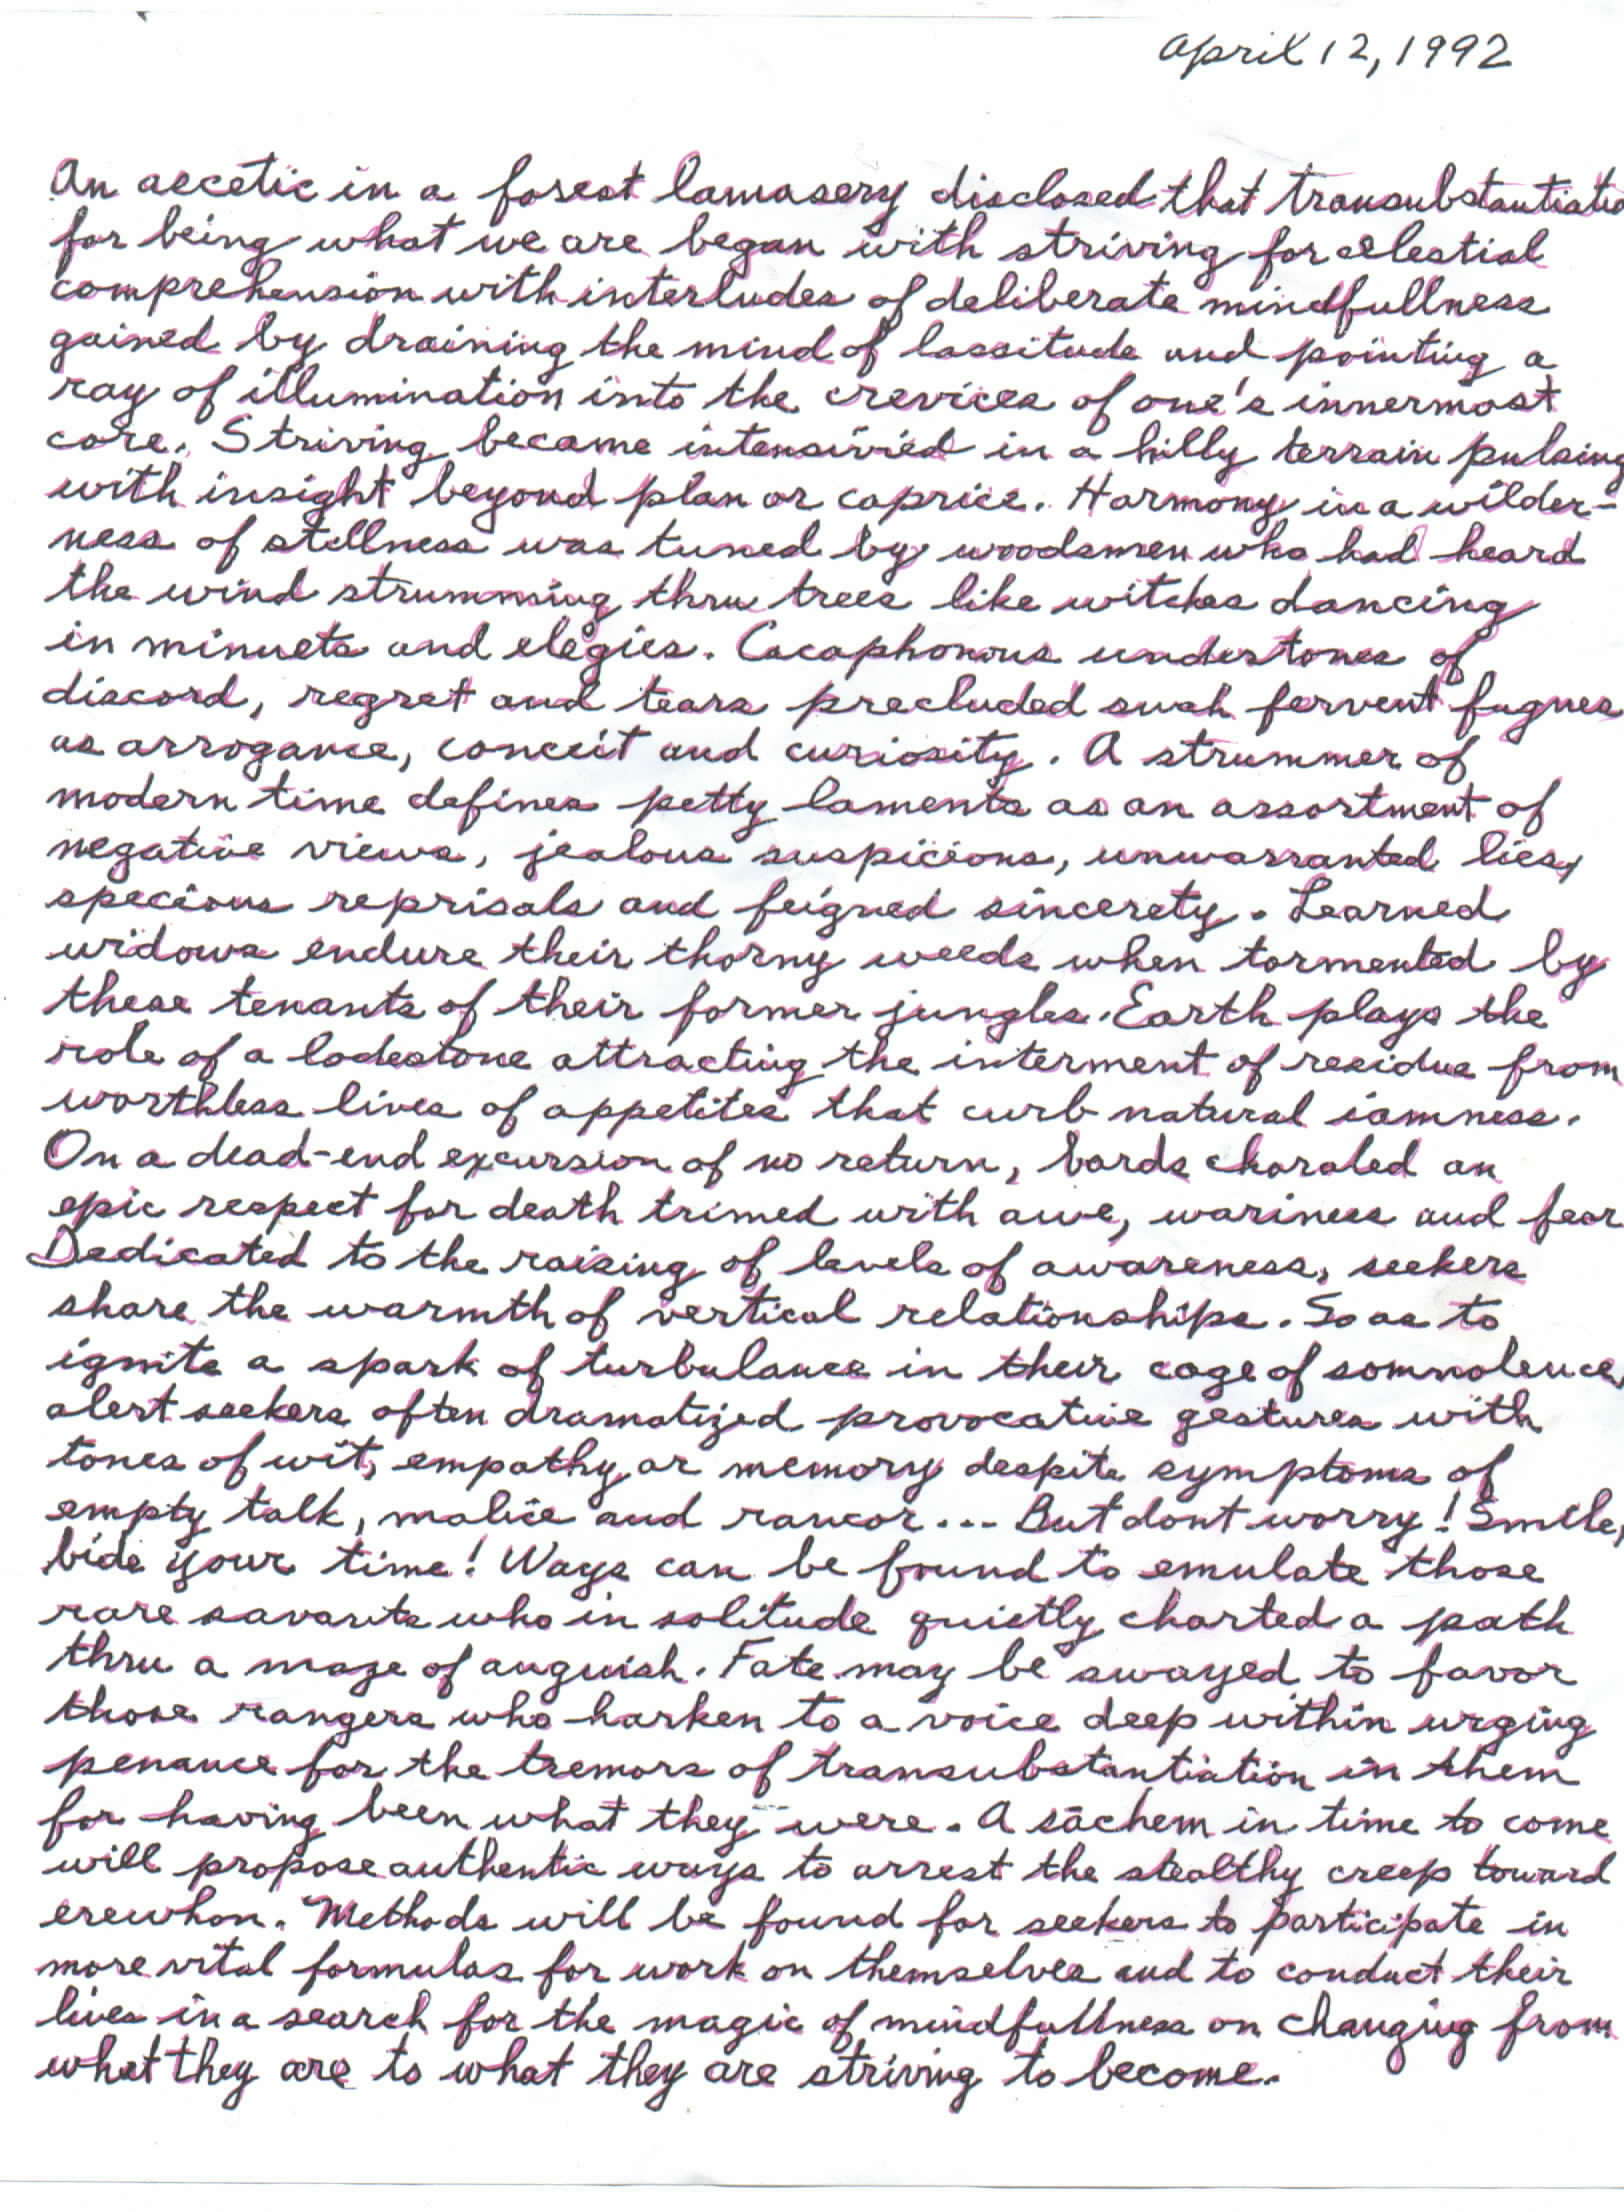 April 12, 1992
An aecetic in a forest lamasery disclosed that transubstantiatio
for being what we are began with striving for celestial
comprehension with interludes of deliberate mindfullness
gained by draining the mind of lassitude and pointing a
ray of illumination into the crevices of one's innermost
core. Striving became intensivied in a hilly terrain pulsing
with insight beyond plan or caprice. Harmony in a wilder-
ness of stillness was tuned by woodsmen who had heard
the wind strumming thru trees like witches dancing
in minuets and elegies. Cacaphonous undertones of
discord, regret and tears precluded such fervent fugues
as arrogance, conceit and curiosity. A strummer of
modern time defines petty laments as an assortment of
negative views, jealous suspicions, unwarranted lies,
specious reprisals and feigned sincerety. Learned
widows endure their thorny weeds when tormented by
these tenants of their former jungles. Earth plays the
role of a lodestone attracting the interment of residue from
worthless lives of appetites that curb natural iamness.
On a dead-end excursion of no return, bards choraled an
epic respect for death trimed with awe, wariness and fear
Dedicated to the raising of levels of awareness, seekers
share the warmth of vertical relationships. So as to
ignite a spark of turbulance in their cage of somnolence,
alert seekers often dramatized provocative gestures with
tones of wit, empathy or memory despite symptoms of
empty talk, malice and rancor... But dont worry! Smile,
bide your time! Ways can be found to emulate those
rare savants who in solitude quietly charted a path
thru a maze of anguish. Fate may be swayed to favor
those rangers who harken to a voice deep within urging
penance for the tremors of transubstantiation in them
for having been what they were. A sachem in time to come
will propose authentic ways to arrest the stealthy creep toward
erewhon. Methods will be found for seekers to participate in
more vital formulas for work on themselves and to conduct their
lives in a search for the magic of mindfullness on changing from
what they are to what they are striving to become.